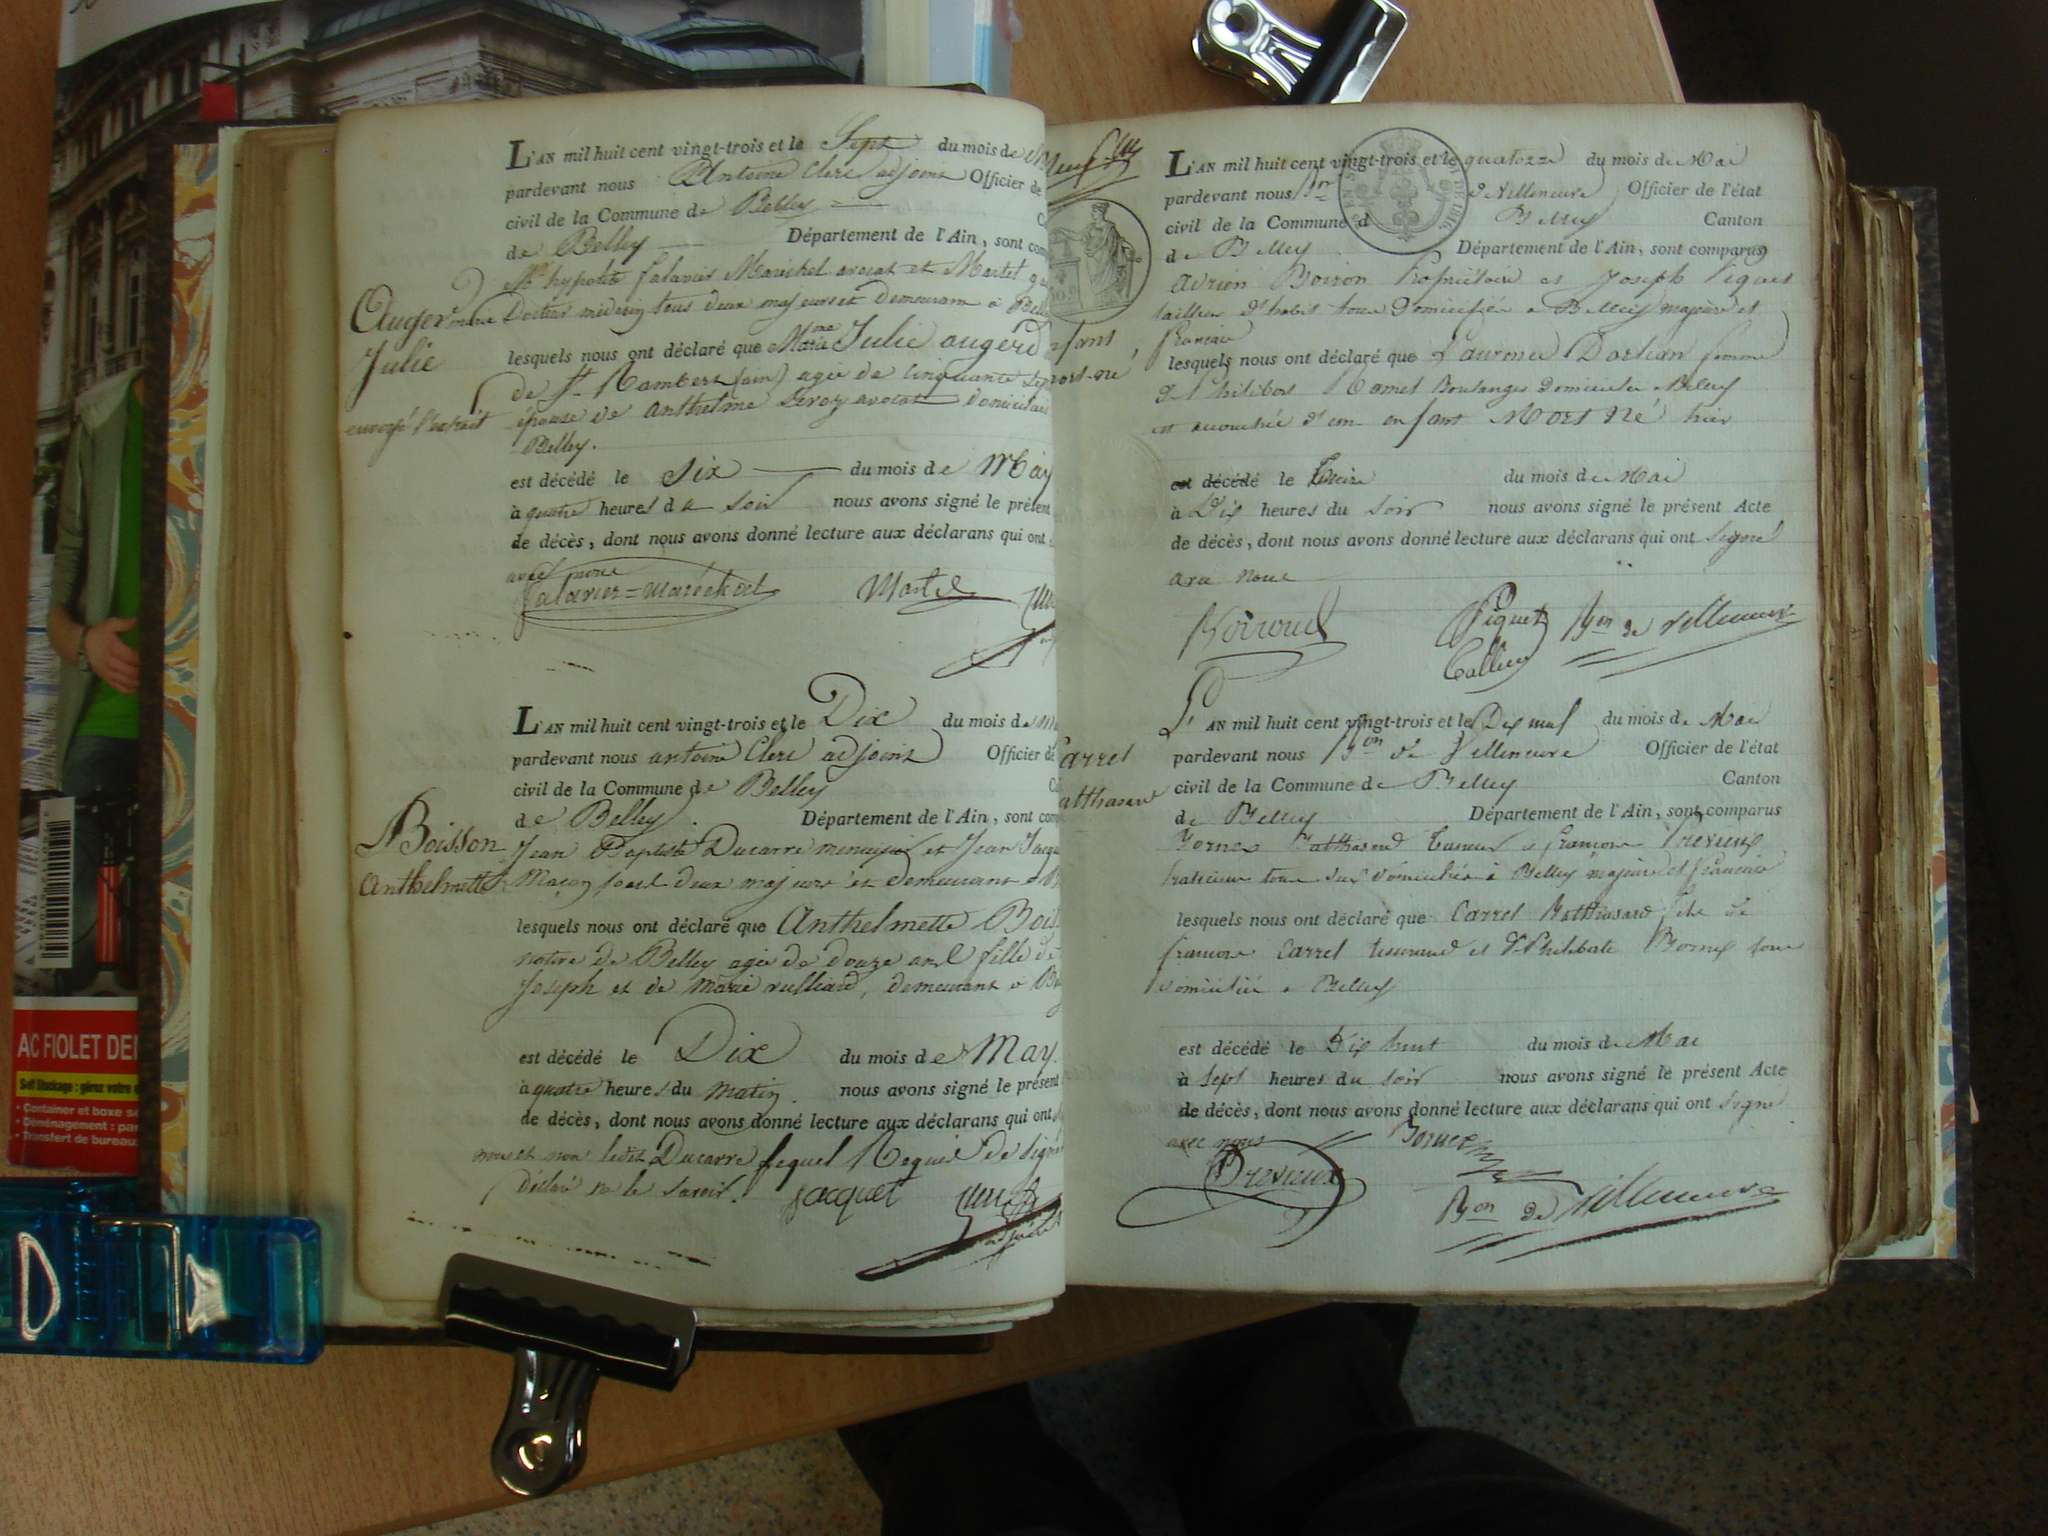 L'AN mil huit cent vingt-trois et le Sept du mois de
pardevant nous Antoine Clerc adjoint Officier de
civil de la Commune de Belley
de Belley Département de l'Ain, sont com
Mr hypolite falavier Maréchal avocat et Martel
Docteur médecin tous deux majeurs et demeurant à Belle
Auger
Julie
lesquels nous ont déclaré que Marie Julie auger
de St Rambert (ain) agée de cinquante sept
épouse de anthelme Leroy avocat domicilié
Belley.
envoyé l'extrait
est décédé le Six du mois de May
à quatre heures du soir nous avons signé le présent
de décès, dont nous avons donné lecture aux déclarans qui ont
avec nous
falavier = Maréchal Martel
L'AN mil huit cent vingt-trois et le Dix du mois de
pardevant nous antoine Clerc adjoint Officier de
civil de la Commune de Belley
de Belley. Département de l'Ain, sont com
Boisson
Anthelmette
Jean Baptiste Ducarre menuisier et Jean Jacqu
Maçon, tous deux majeurs et demeurant à
lesquels nous ont déclaré que Anthelmette Bois
native de Belley agée de douze ans fille de
Joseph et de Marie rulliard, demeurant à
est décédé le Dix du mois de May.
à quatre heures du matin. nous avons signé le présent
de décès, dont nous avons donné lecture aux déclarans qui ont
nous et non ledit Ducarre lequel Requis de signer
déclaré ne le savoir. Jacquet
L'AN mil huit cent vingt-trois et le quatorze du mois de Mai
pardevant nous Bon de Villeneuve Officier de l'état
civil de la Commune d Belley Canton
de Belley Département de l'Ain, sont comparus
Boiron Propriétaire et Joseph Piquet
tailleur d'habit tous domiciliés à Belley majeurs et
français
enfant
mort-né
lesquels nous ont déclaré que Laurence Dortian femme
de Philibert Camet Boulanger domiciliée à Belley
est accouchée d'un enfant Mort Né hier
est décédé le Treize du mois de Mai
à Dix heures du soir nous avons signé le présent Acte
de décès, dont nous avons donné lecture aux déclarans qui ont signé
avec nous
Boiroud Piquet Bon de Villeneuve
L'AN mil huit cent vingt-trois et le Dix neuf du mois de Mai
pardevant nous Bon de Villeneuve Officier de l'état
civil de la Commune de Belley Canton
de Belley Département de l'Ain, sont comparus
Carrel
Balthasard
Balthasard et françois Brevieux
tous deux domiciliés à Belley majeurs et français
lesquels nous ont déclaré que Carrel Balthasard fils de
françois Carrel et de Philiberte tous
domiciliés à Belley
est décédé le Dix huit du mois de Mai
à Sept heures du soir nous avons signé le présent Acte
de décès, dont nous avons donné lecture aux déclarans qui ont signé
avec nous
Brevieux
Bon de Villeneuve
AC FIOLET DE
Self Stockage : gérez votre
• Container et boxe
• Déménagement : par
• Transfert de bureau